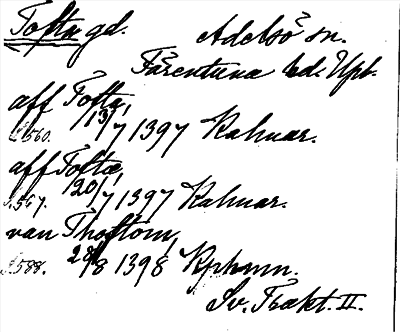 Tofta gd. Adelsö sn.
Färentuna hd. Upl.
aff Tofta,
s. 560. 13/7 1397 Kalmar.
aff Toftæ,
s. 567. 20/7 1397 Kalmar.
van Thoftom,
s. 588. 28/8 1398 Kphamn.
Sv. Trakt. II.